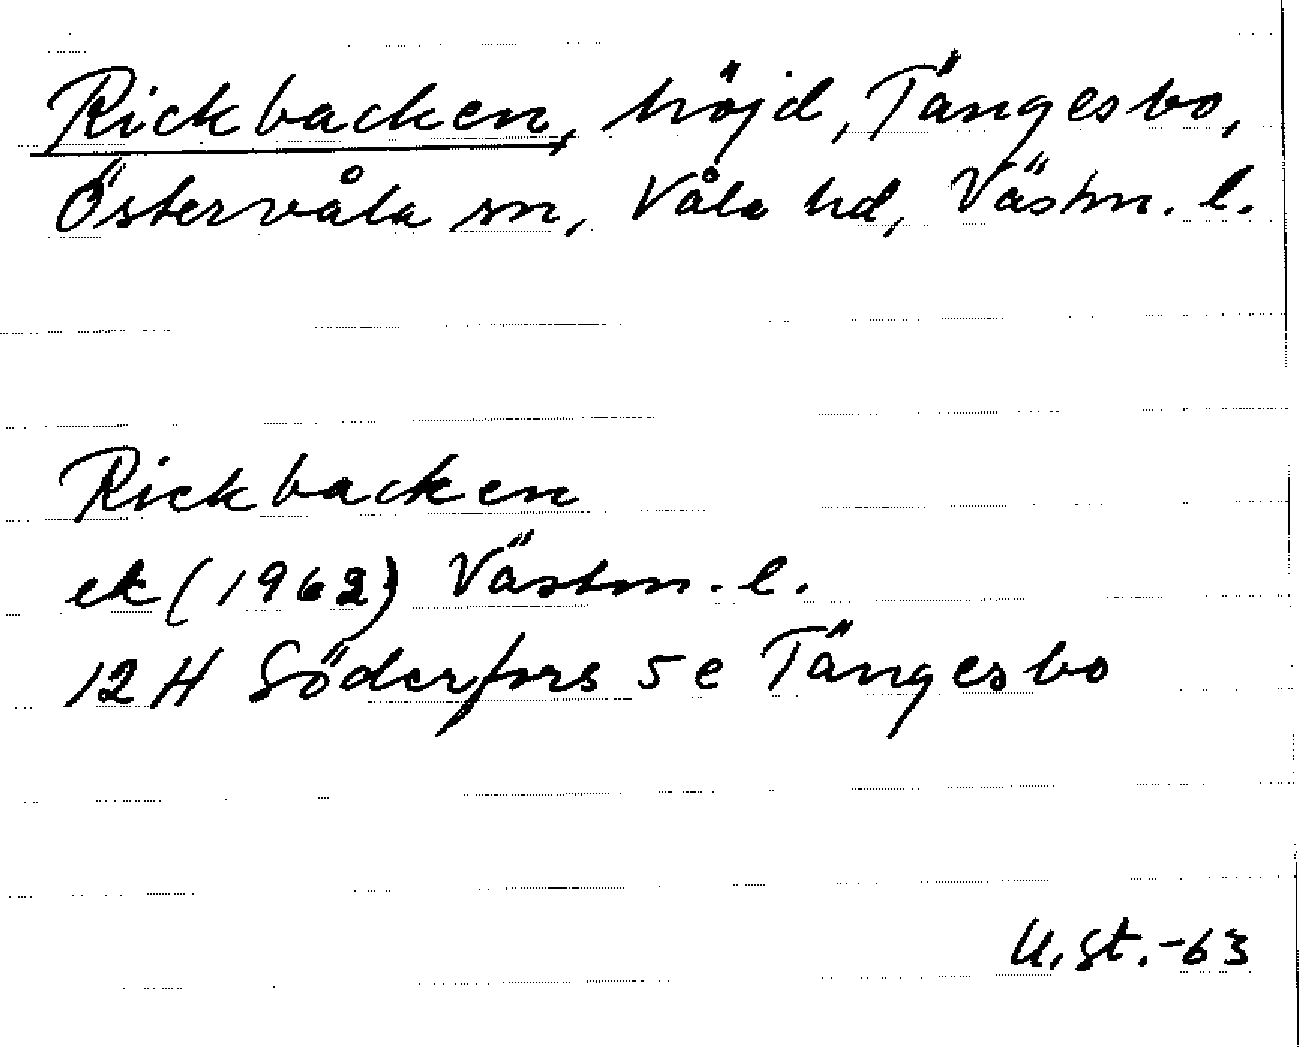 Rickbacken, höjd, Tängesbo,
Östervåla sn, Våla hd, Västm. l.
Rickbacken
ek (1962) Västm. l.
12 H Söderfors 5 e Tängesbo
U. St. -63